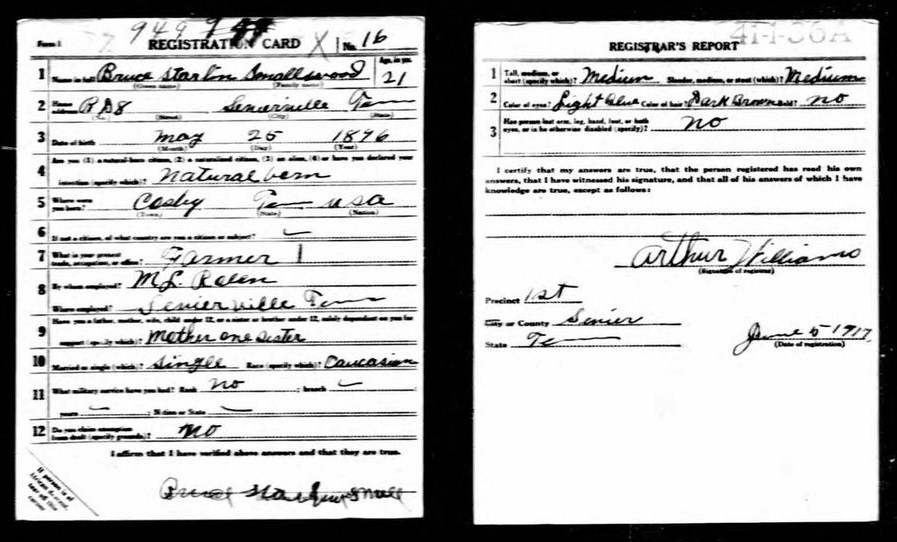 949
Form 1 REGISTRATION CARD No. 16
1 Name in full Bruce Starlin Smallwood Age, in yrs. 21
(Given name) (Family name)
2 Home address R D8 Sevierville Tenn
(Street) (City) (State)
3 Date of birth May 25 1896
(Month) (Day) (Year)
Are you (1) a natural-born citizen, (2) a naturalized citizen, (3) an alien, (4) or have you declared your
4 intention (specify which)? Natural born
5 Where were you born? Cosby Tenn USA
(Town) (State) (Nation)
6 If not a citizen, of what country are you a citizen or subject?
7 What is your present trade, occupation, or office? Farmer 1
8 By whom employed? M L
Where employed? Sevierville Tenn
Have you a father, mother, wife, child under 12, or a sister or brother under 12, solely dependent on you for
9 support (specify which)? Mother one sister
10 Married or single (which)? Single Race (specify which)? Caucasian
11 What military service have you had? Rank no ; branch
years ; Nation or State
12 Do you claim exemption from draft (specify grounds)? No
I affirm that I have verified above answers and that they are true.
If person is of
African descent,
tear off this
corner
REGISTRAR'S REPORT 41-1-36A
1 Tall, medium, or short (specify which)? Medium Slender, medium, or stout (which)? Medium
2 Color of eyes? Light blue Color of hair? Dark Brown Bald? no
3 Has person lost arm, leg, hand, foot, or both eyes, or is he otherwise disabled (specify)? no
I certify that my answers are true, that the person registered has read his own
answers, that I have witnessed his signature, and that all of his answers of which I have
knowledge are true, except as follows:
Arthur Williams
(Signature of registrar)
Precinct 1st
City or County Sevier
State Tenn
June 5 1917
(Date of registration)